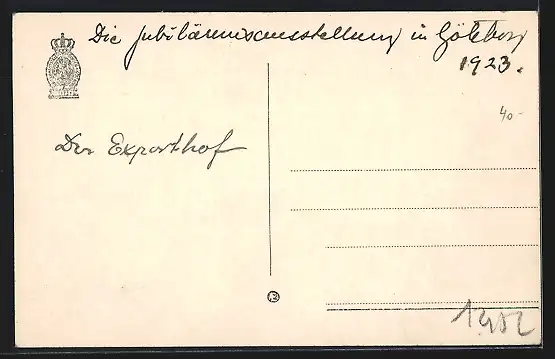 Die Jubiläumsausstellung in Göteborg
1923.
40-
Der Exporthof